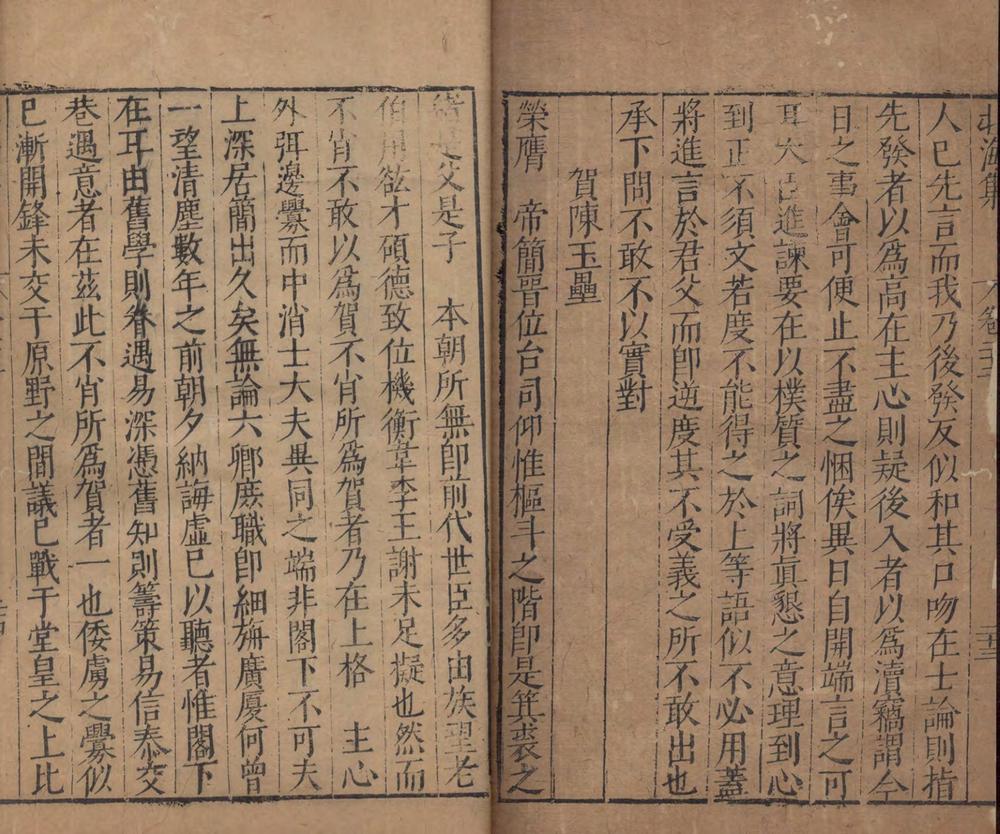 人已先言而我乃後發友似和其口吻在士論則指
先發者以爲高在主心則疑後入者以爲瀆竊謂今
日之事會可便止不盡之悃俟異日自開端言之可
耳大臣進諫要在以樸質之詞將眞懇之意理到心
到正不須文若度不能得之於上等語似不必用蓋
將進言於君父而卽逆度其不受義之所不敢出也
承下問不敢不以實對
賀陳玉壘
榮膺 帝簡晉位台司仰惟樞斗之階卽是箕裘之
是父是子 本朝所無卽前代世臣多由族望老
伯用能才碩德致位機衡韋李王謝未足擬也然而
不肖不敢以爲賀不肖所爲賀者乃在上格 主心
外弭邊釁而中消士大夫異同之端非閣下不可夫
上深居簡出久矣無論六卿庶職卽細旃廣廈何曾
一望清塵數年之前朝夕納誨虛已以聽者惟閣下
在耳由舊學則眷遇易深憑舊知則籌策易信泰交
巷遇意者在茲此不肖所爲賀者一也倭虜之釁似
已漸開鋒未交于原野之間議已戰于堂皇之上比